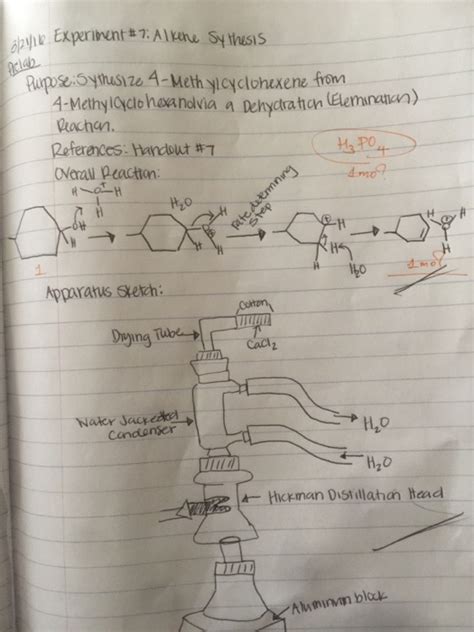 3/21/16 Experiment #7: Alkene Sythesis
Prelab
Purpose: Sythesize 4-Methylcyclohexene from
4-Methylcyclohexanol via a Dehydration (Elemination)
Reaction.
References: Handout #7
H3PO4
1 mol?
Overall Reaction:
H O+ H
H
OH
H
1
H2O
H
H
H
Rate determining
Step
+
H
H
H
H2O
H
H
H
1 mol?
Apparatus Sketch:
Cotton
Drying Tube
CaCl2
Water Jacketed
Condenser
H2O
H2O
Hickman Distillation Head
Aluminum block